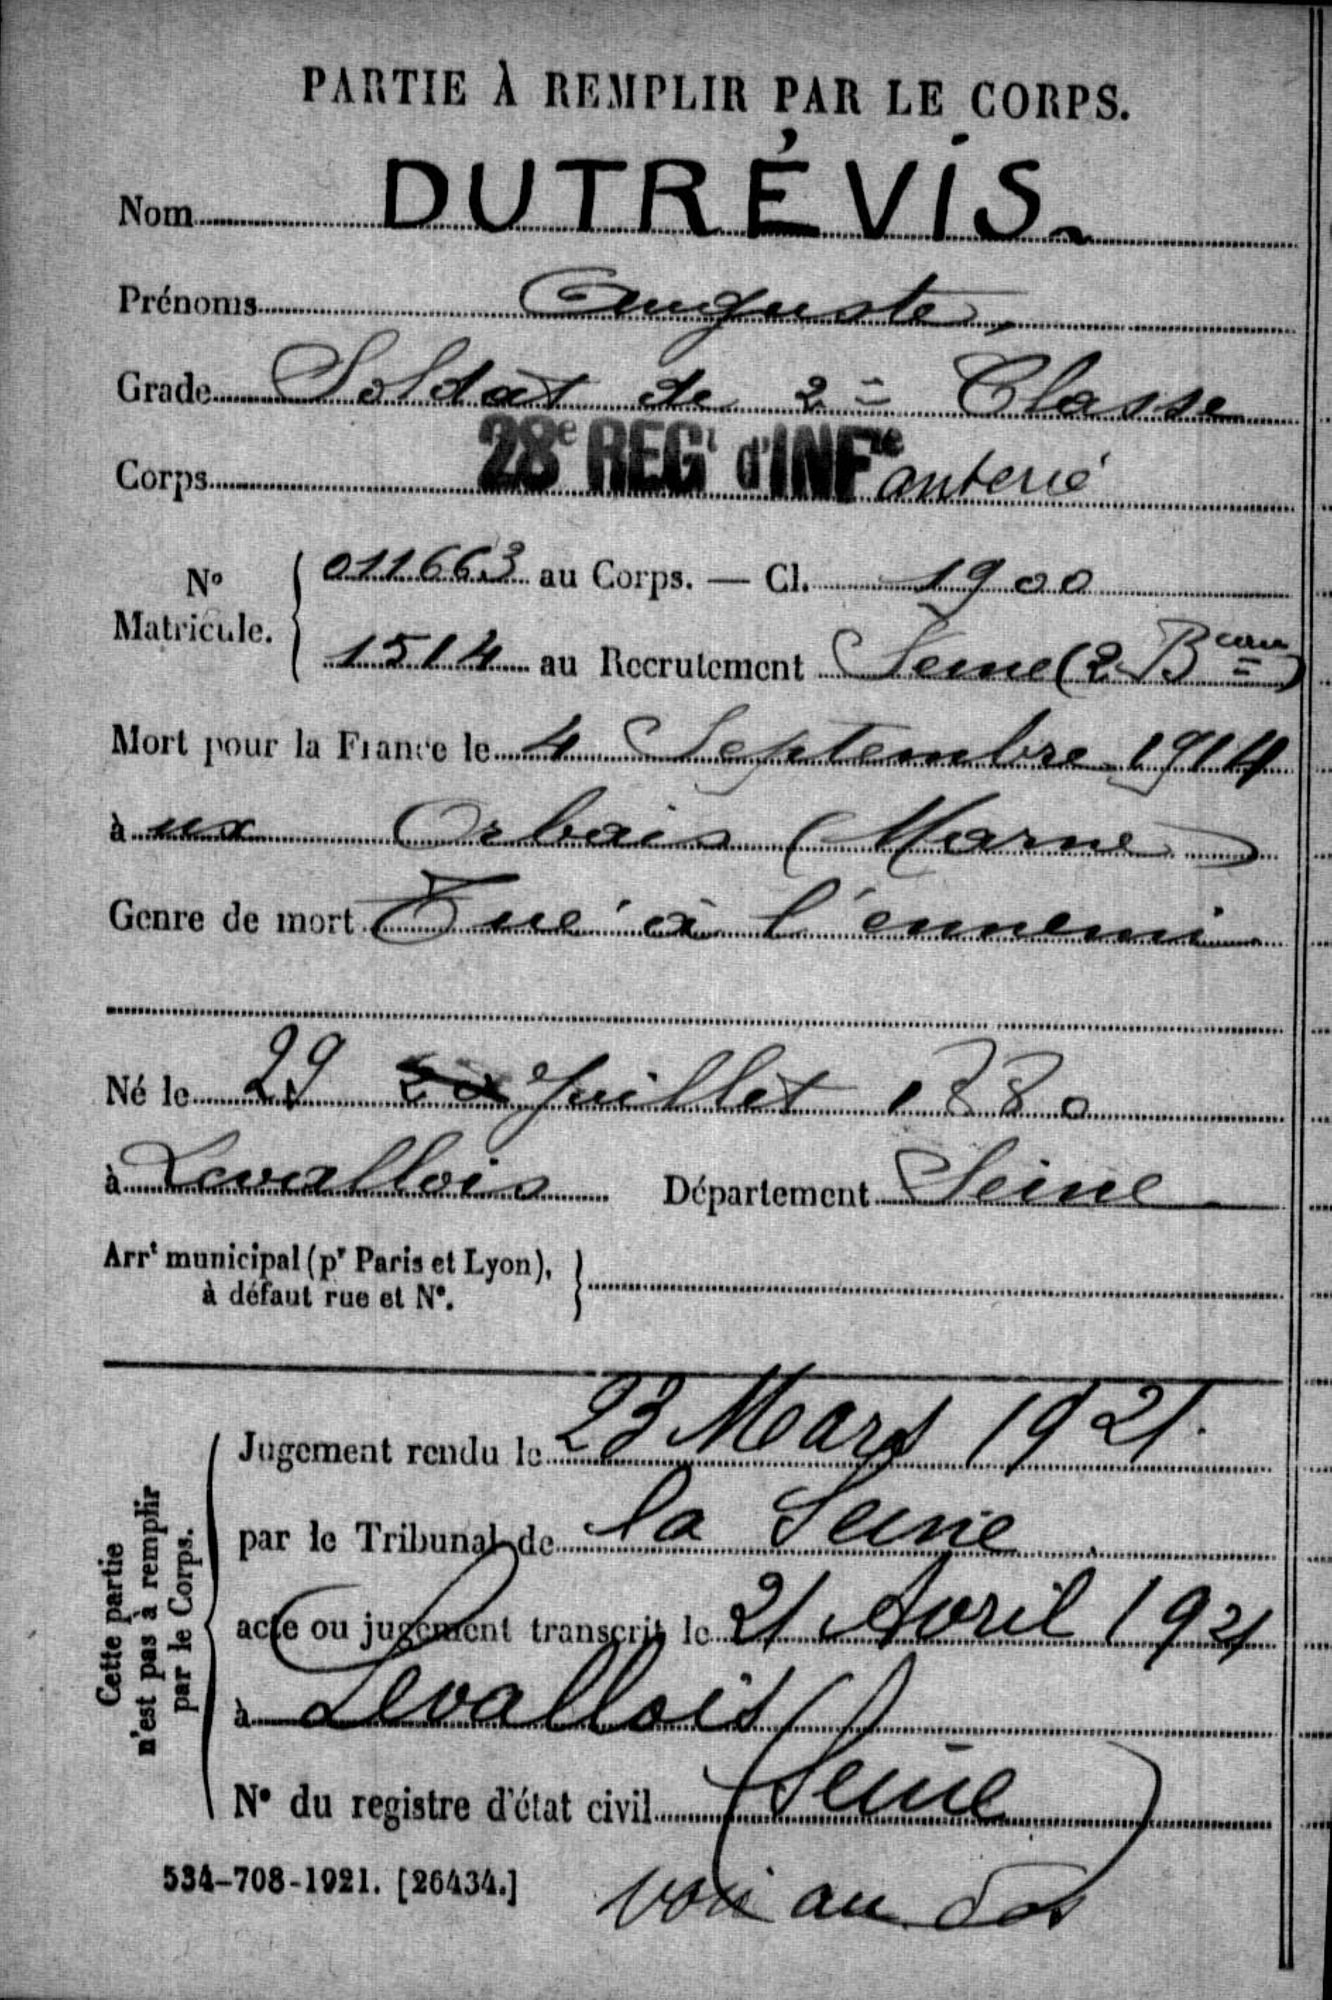 PARTIE À REMPLIR PAR LE CORPS.
Nom DUTRÉVIS.
Prénoms Auguste,
Grade Soldat de 2= Classe
Corps 28e REGt d'INFie anterie
No Matricule. 011663 au Corps. — Cl. 1900
1514 au Recrutement Seine (2 Beau)
Mort pour la France le 4 Septembre 1914
à ux Orbais (Marne)
Genre de mort Tué à l'ennemi.
Né le 29 Juillet 1880
à Levallois Département Seine
Arrt municipal (pr Paris et Lyon),
à défaut rue et No.
Cette partie
n'est pas à remplir
par le Corps.
Jugement rendu le 23 Mars 1921.
par le Tribunal de la Seine
acte ou jugement transcrit le 21 Avril 1921
à Levallois
No du registre d'état civil (Seine)
534-708-1921. [26434.]
voir au dos